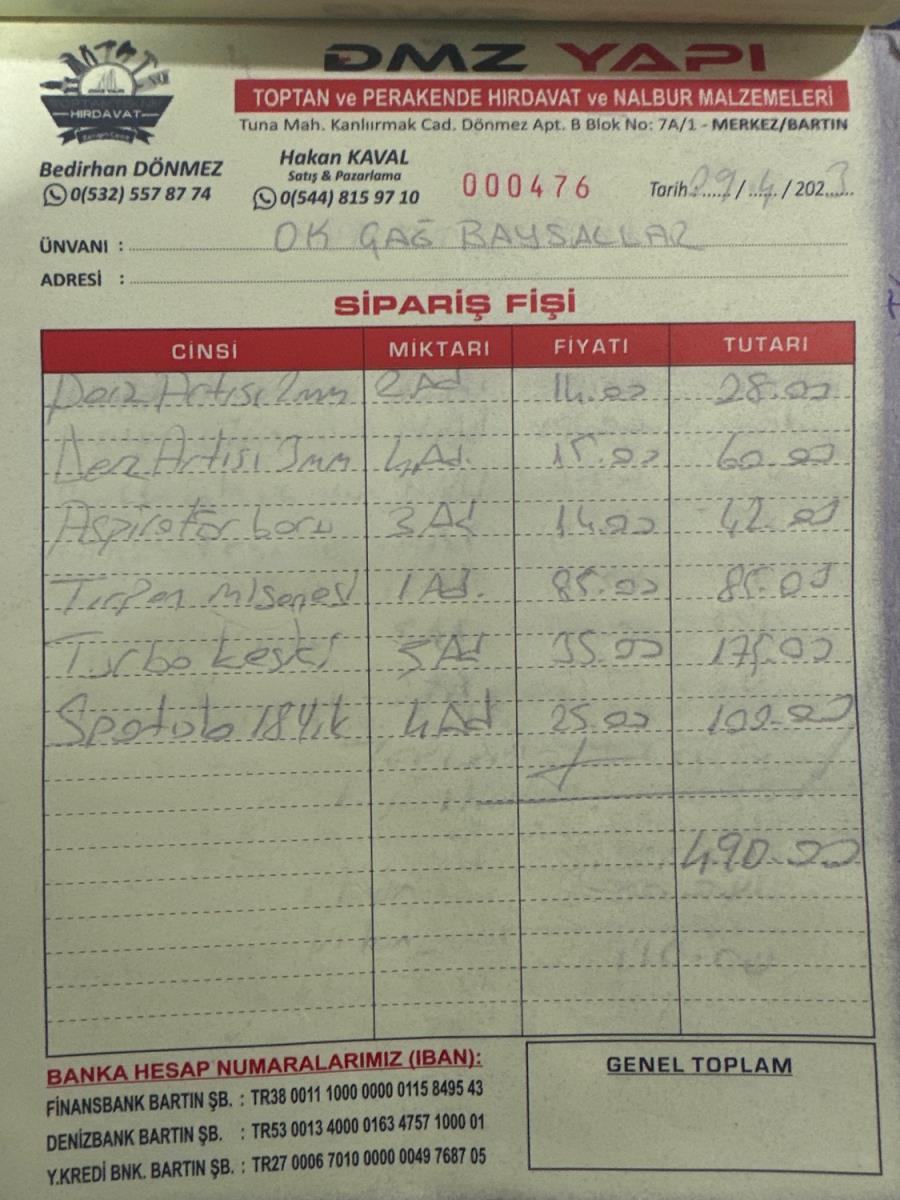 DMZ YAPI
TOPTAN ve PERAKENDE HIRDAVAT ve NALBUR MALZEMELERİ
HIRDAVAT
Tuna Mah. Kanlıırmak Cad. Dönmez Apt. B Blok No: 7A/1 - MERKEZ/BARTIN
Bedirhan DÖNMEZ
0(532) 557 87 74
Hakan KAVAL
Satış & Pazarlama
0(544) 815 97 10
000476
Tarih: 29/4/2023
ÜNVANI : OK ÇAĞ BAYSALLAR
ADRESİ :
SİPARİŞ FİŞİ
CİNSİ MİKTARI FİYATI TUTARI
Derz Artısı 2mm 2 Ad 14.00 28.00
Derz Artısı 3mm 4 Ad. 15.00 60.00
Aspiratör boru 3 Ad 14.00 42.00
Tırpan misenesi 1 Ad. 85.00 85.00
Turbo keski 5 Ad 35.00 175.00
Spatula 4 Ad 25.00 100.00
490.00
BANKA HESAP NUMARALARIMIZ (IBAN):
FİNANSBANK BARTIN ŞB. : TR38 0011 1000 0000 0115 8495 43
DENİZBANK BARTIN ŞB. : TR53 0013 4000 0163 4757 1000 01
Y.KREDİ BNK. BARTIN ŞB. : TR27 0006 7010 0000 0049 7687 05
GENEL TOPLAM